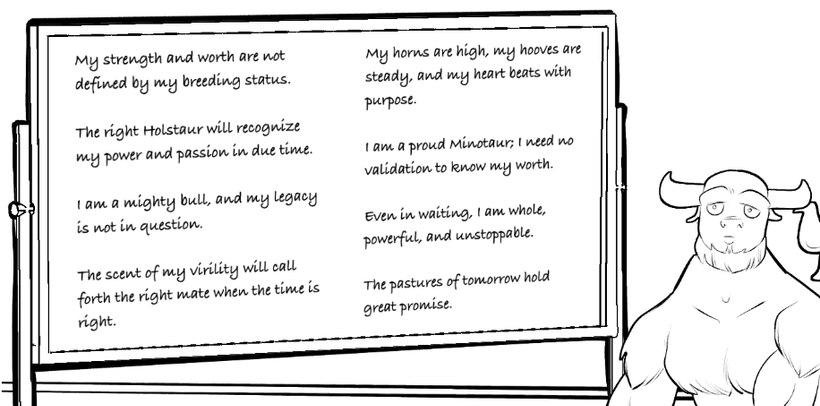 My strength and worth are not
defined by my breeding status.
The right Holstaur will recognize
my power and passion in due time.
I am a mighty bull, and my legacy
is not in question.
The scent of my virility will call
forth the right mate when the time is
right.
My horns are high, my hooves are
steady, and my heart beats with
purpose.
I am a proud Minotaur; I need no
validation to know my worth.
Even in waiting, I am whole,
powerful, and unstoppable.
The pastures of tomorrow hold
great promise.